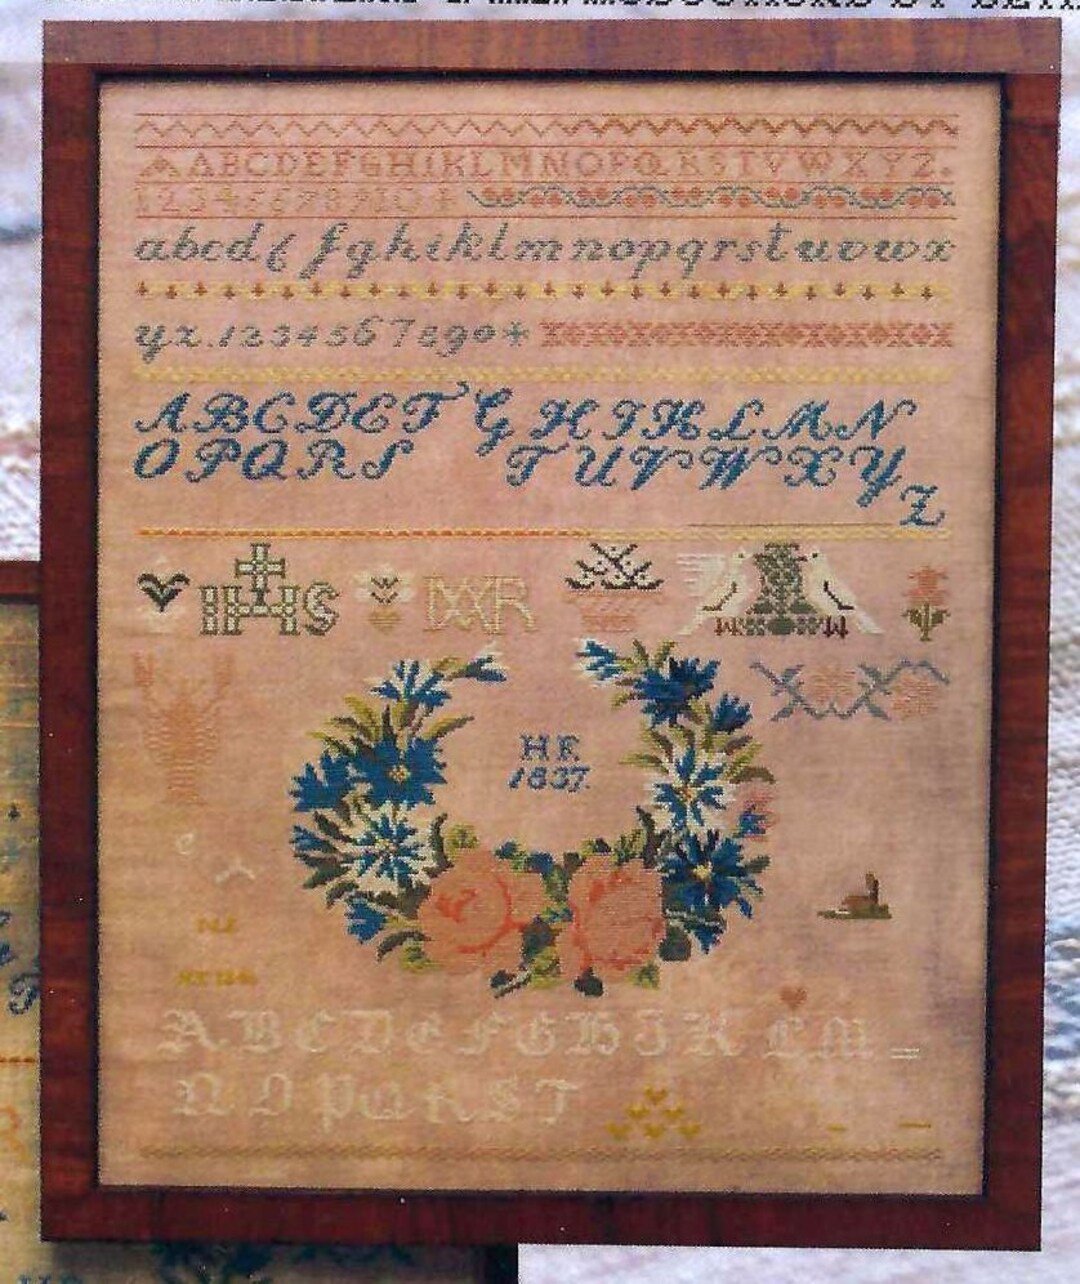 ABCDEFGHIKLMNOPQRSTVWXYZ.
12345678910+
abcdefghiklmnopqrstuvwx
yz.1234567890*
ABCDEFGHIKLMN
OPQRSTUVWXY
Z
IHS
H F
1837.
ABCDEFGHIKLM
NOPQRST